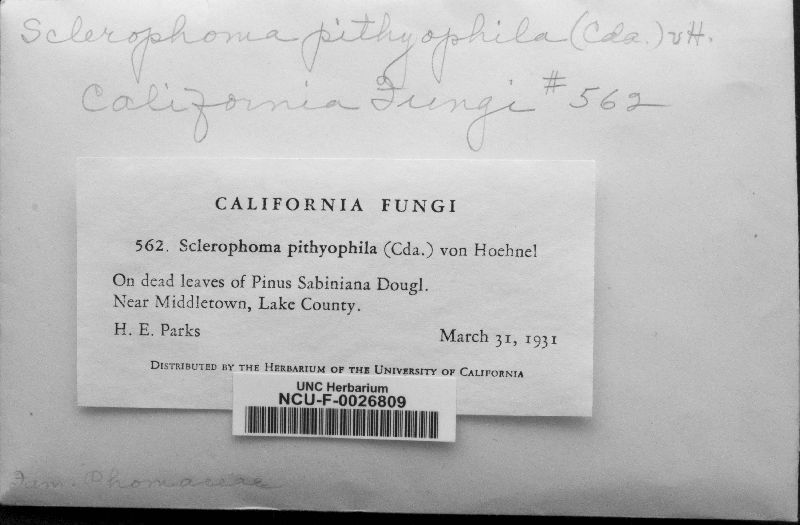 Sclerophoma pithyophila (Cda.) vH.
California Fungi #562
CALIFORNIA FUNGI
562. Sclerophoma pithyophila (Cda.) von Hoehnel
On dead leaves of Pinus Sabiniana Dougl.
Near Middletown, Lake County.
H. E. Parks March 31, 1931
DISTRIBUTED BY THE HERBARIUM OF THE UNIVERSITY OF CALIFORNIA
UNC Herbarium
NCU-F-0026809
Fam. Phomaceae